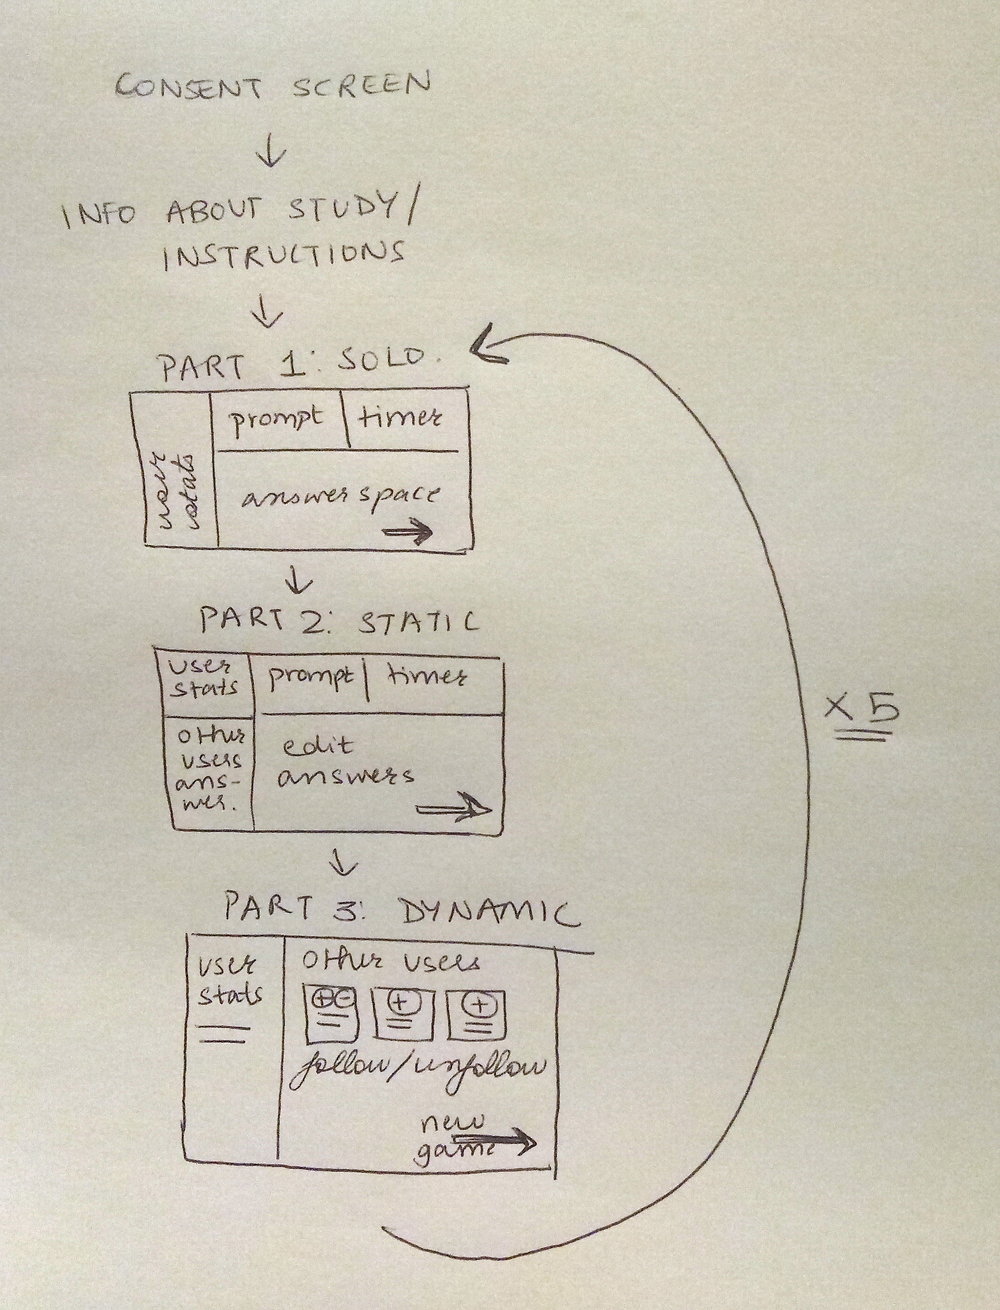 CONSENT SCREEN
INFO ABOUT STUDY/
INSTRUCTIONS
PART 1: SOLO.
user
stats
prompt
timer
answer space
PART 2: STATIC
user
stats
prompt
timer
other
users
ans-
wer.
edit
answers
PART 3: DYNAMIC
user
stats
other users
+ -
+
+
follow/unfollow
new
game
x 5